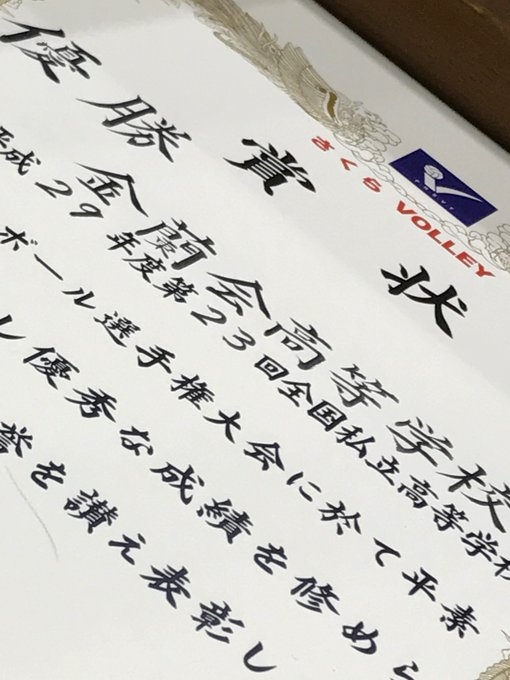 賞状
さくら VOLLEY
優勝
金蘭会高等学校
平成29年度第23回全国私立高等学校
ボール選手権大会に於て平素
し優秀な成績を修めら
誉を讃え表彰し